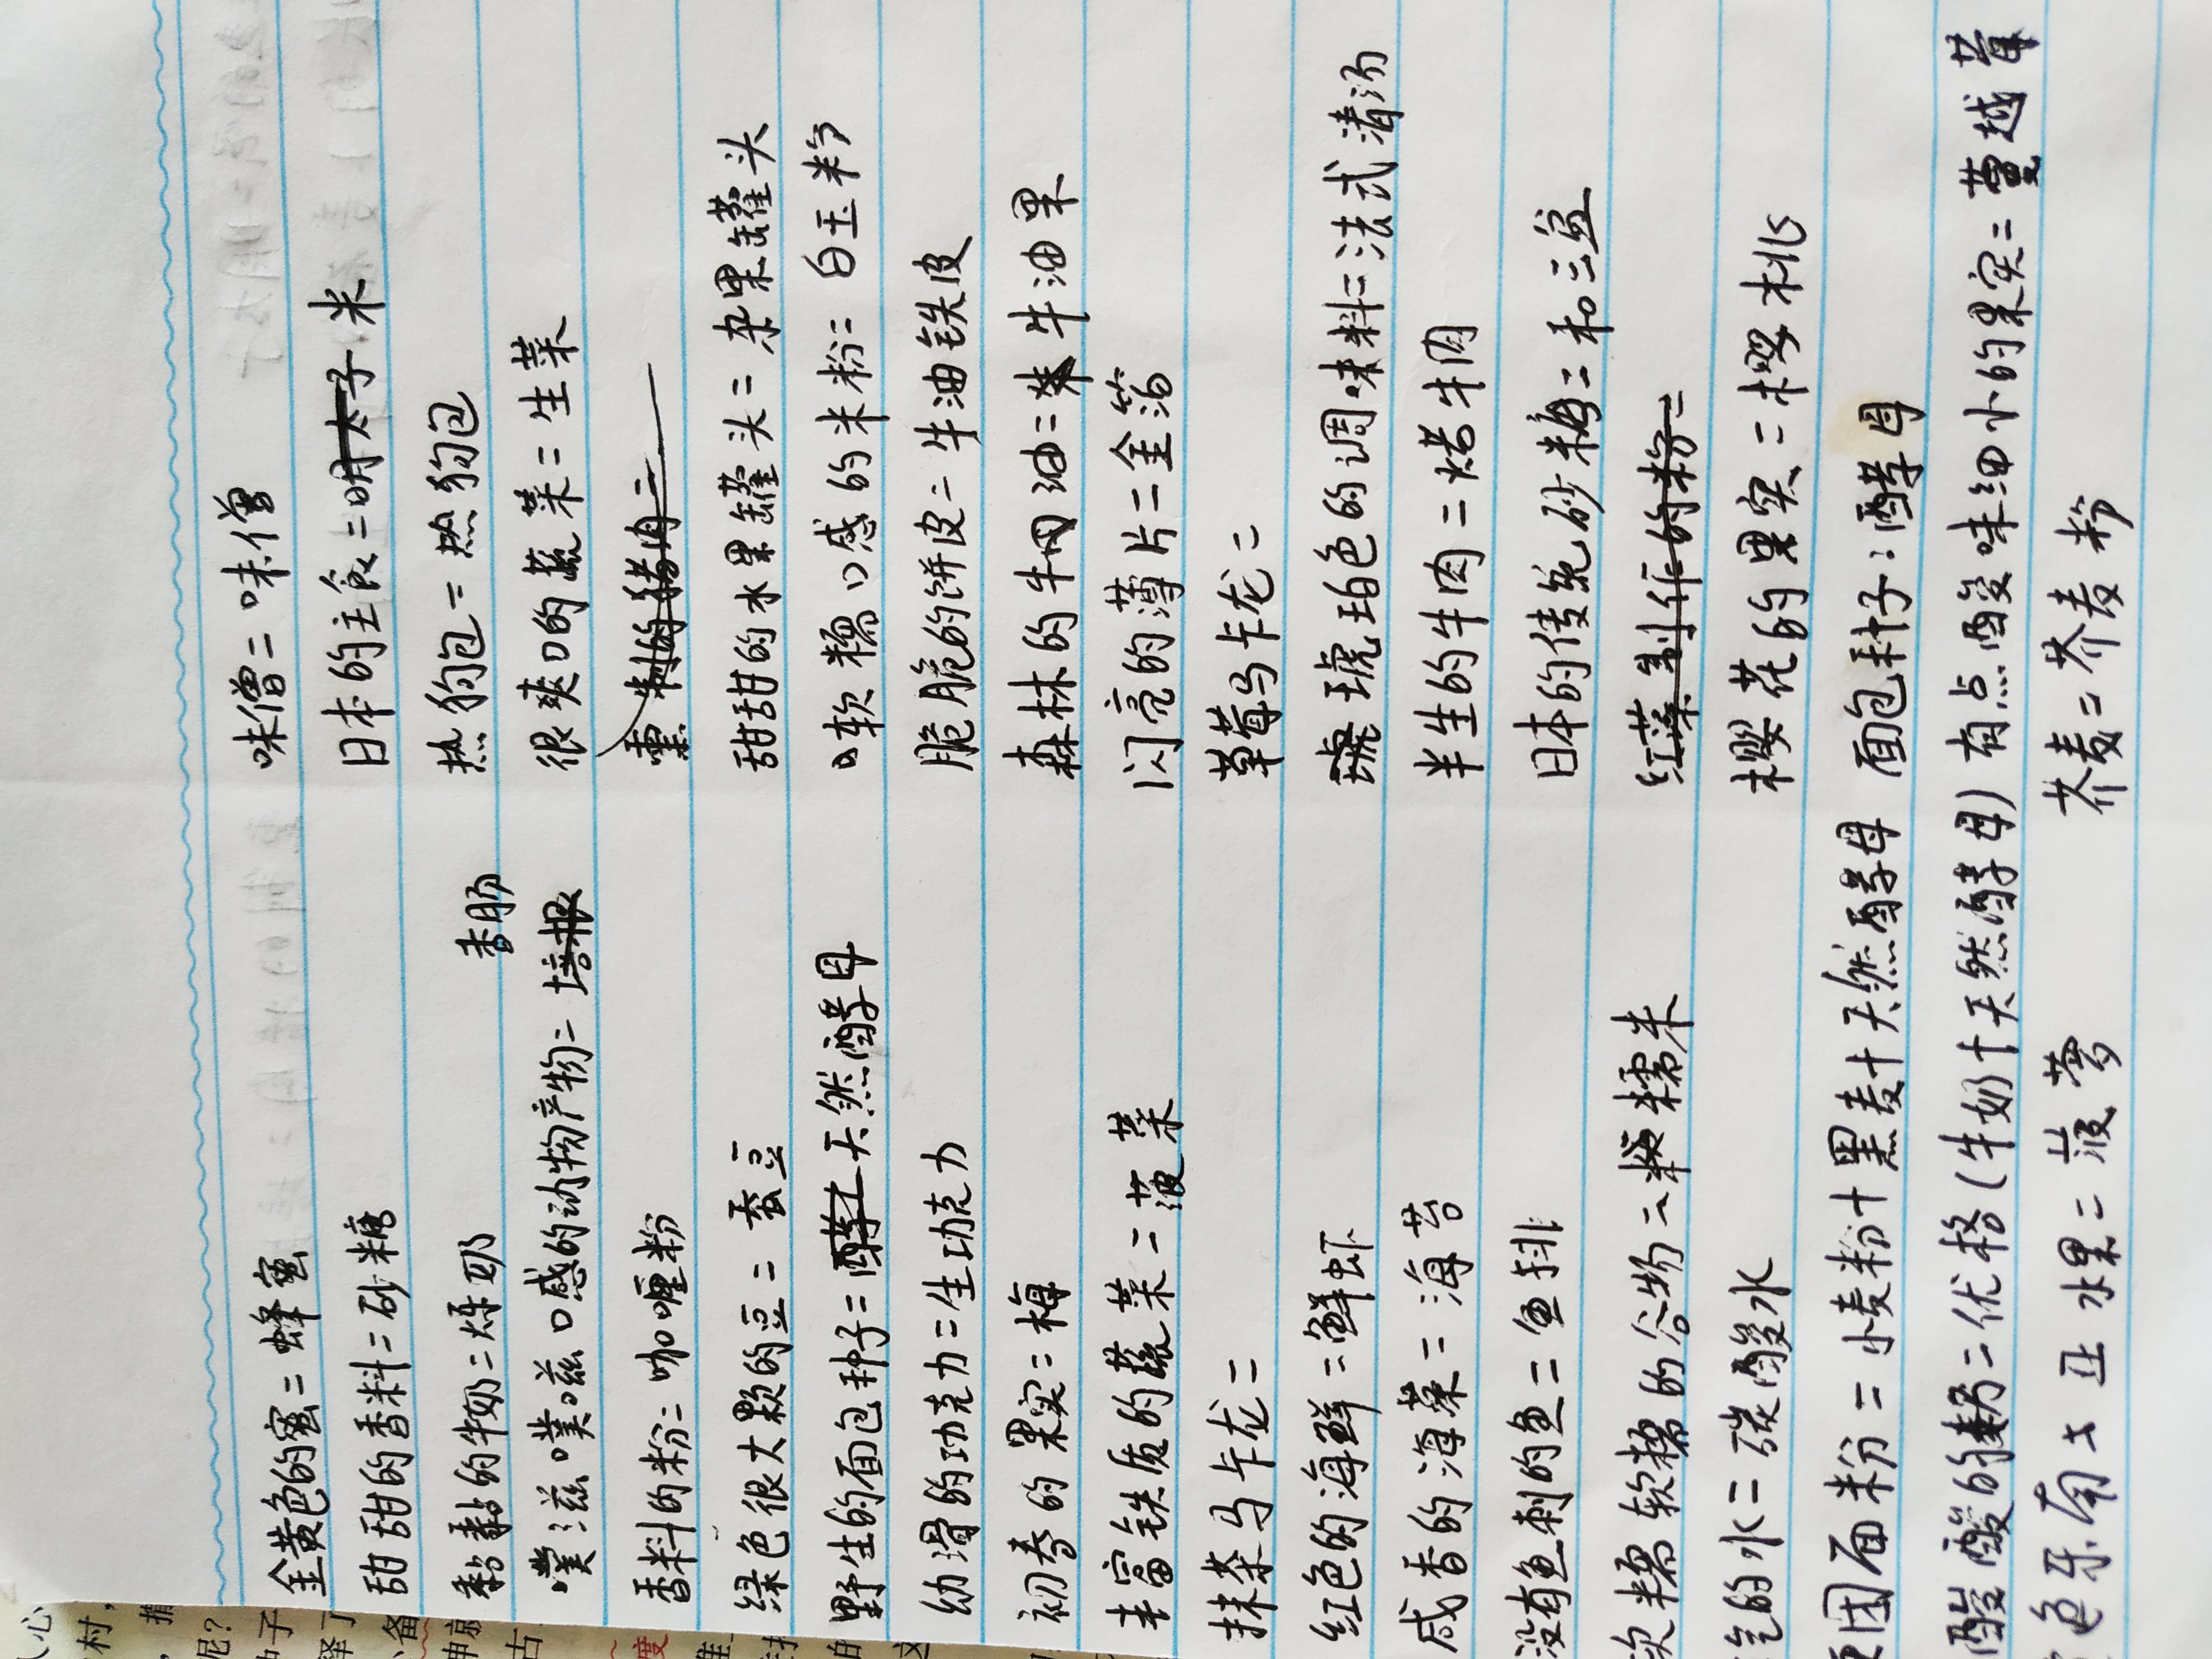 金黄色的蜜=蜂蜜 味僧=味僧
甜甜的香料=砂糖 日本的主食=明太子 米
黏黏的牛奶=炼奶 热狗包=热狗包
香肠
噗滋噗滋口感的动物产物=培根 很爽口的蔬菜=生菜
香料的粉=咖喱粉 熏制的猪肉=
绿色很大颗的豆=蚕豆 甜甜的水果罐头=杂果罐头
野生的面包种子=酵 天然酵母 口软糯口感的米粉=白玉粉
幼滑的功克力=生功克力 脆脆的饼皮=牛油铁皮
初春的果实=梅 森林的牛油=牛油果
丰富铁质的蔬菜=菠菜 闪亮的薄片=金箔
抹茶马卡龙= 草莓马卡龙=
红色的海鲜=鲜虾 琥珀色的调味料=法式清汤
咸香的海菜=海苔 半生的牛肉=烤牛肉
没有鱼刺的鱼=鱼排 日本的传统砂糖=和三盆
软糯软糯的谷物=糯米 红菜制作的粉=
气的水=碳酸水 樱花的果实=樱桃
面团面粉=小麦粉+黑麦+天然酵母 面包种子:酵母
酸酸的奶=优格(牛奶+天然酵母) 有点酸味细小的果实=蔓越莓
色东南亚水果=菠萝 荞麦=荞麦粉